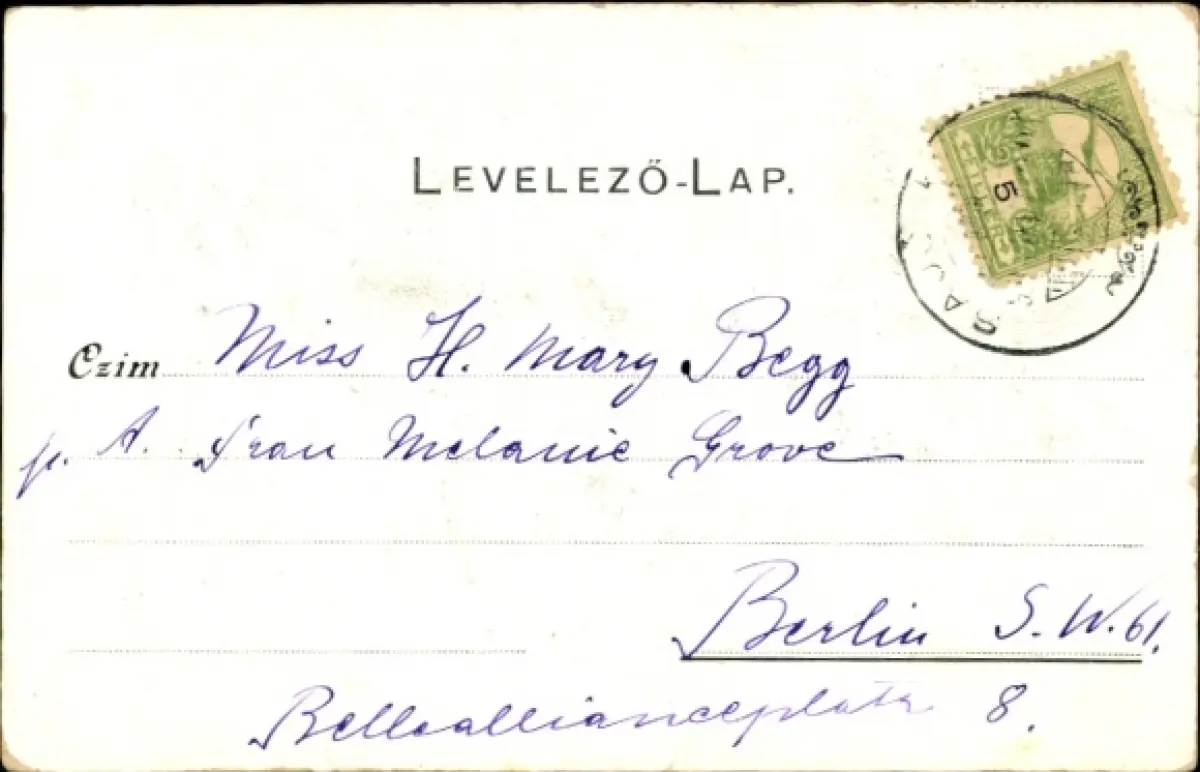 LEVELEZŐ-LAP.
5
FILLÉR
Czim Miss H. Mary Begg
p. A. Frau Melanie Grove
Berlin S.W.61.
Belleallianceplatz 8.